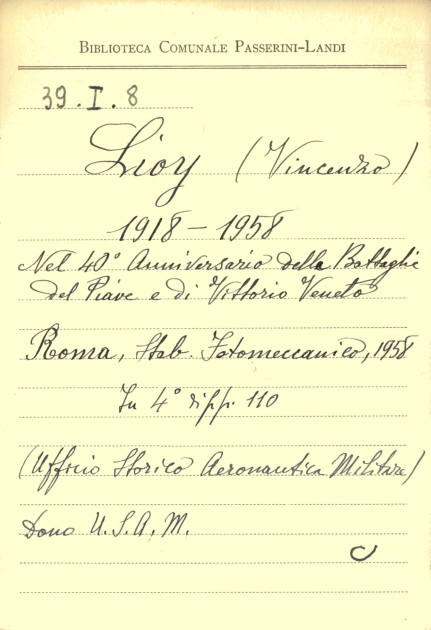 BIBLIOTECA COMUNALE PASSERINI-LANDI
39. I. 8
Lioy (Vincenzo)
1918 - 1958
Nel 40° Anniversario delle Battaglie
del Piave e di Vittorio Veneto
Roma, Stab. Fotomeccanico, 1958
In 4° di pp. 110
(Ufficio Storico Aeronautica Militare)
Dono U.S.A.M.